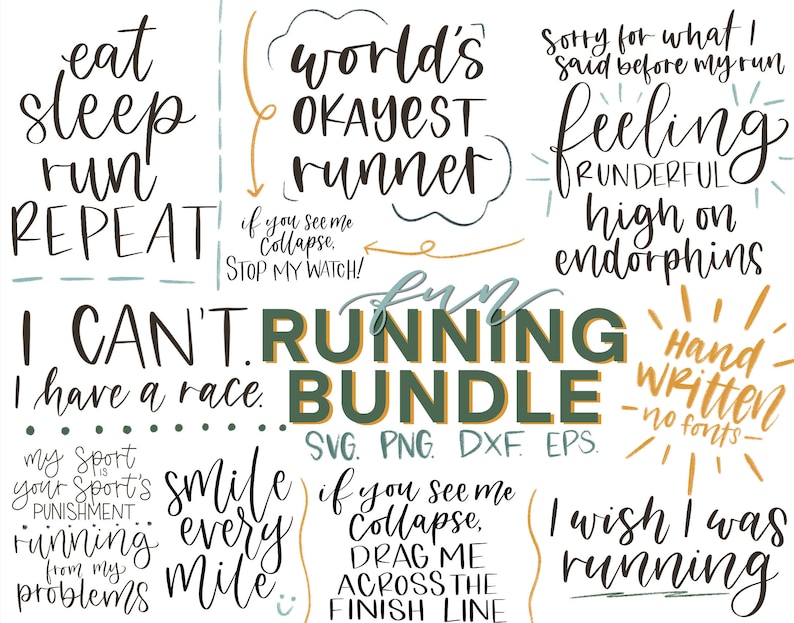 eat
sleep
run
REPEAT
world's
OKAYEST
runner
if you see me
collapse,
STOP MY WATCH!
sorry for what I
said before my run
feeling
RUNDERFUL
high on
endorphins
I CAN'T.
I have a race.
fun
RUNNING
BUNDLE
SVG. PNG. DXF. EPS.
Hand
WRITTEN
no fonts
my sport
is
your sport's
PUNISHMENT
running
from my
problems
smile
every
mile
if you see me
collapse,
DRAG ME
ACROSS THE
FINISH LINE
I wish I was
running